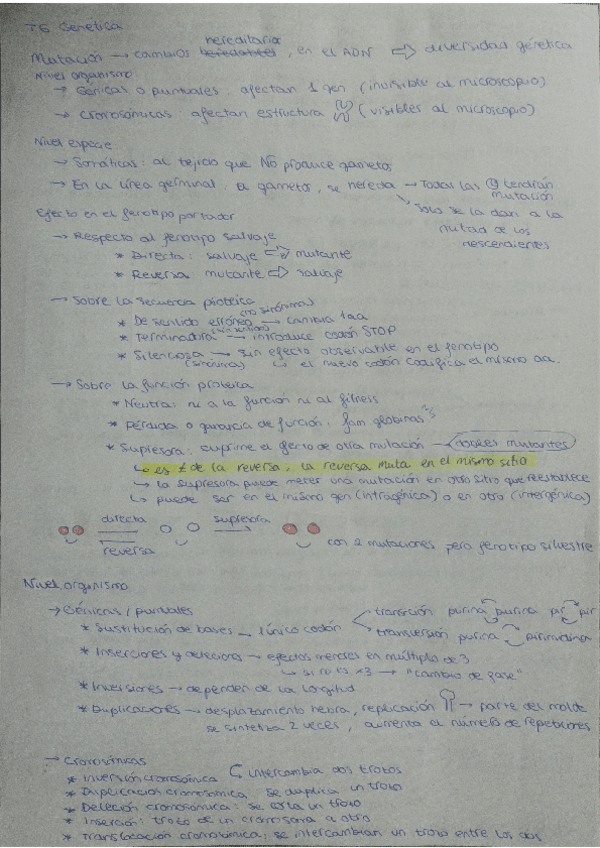 T6 Genética
hereditarios
Mutación → cambios heredables, en el ADN ⇒ diversidad genética
Nivel organismo:
→ Génicas o puntuales: afectan 1 gen (invisible al microscopio)
→ Cromosómicas: afectan estructura (visibles al microscopio)
Nivel especie:
→ Somáticas: al tejido que NO produce gametos
→ En la línea germinal: a gametos, se hereda → Todas las tendrán
mutación
Solo se la dan a la
mitad de los
descendientes
Efecto en el fenotipo portador
→ Respecto al fenotipo salvaje
* Directa: salvaje ⇒ mutante
* Reversa: mutante ⇒ salvaje
→ Sobre la secuencia proteica
(no sinónima)
* De sentido erróneo → cambia 1aa
* Terminadora (sin sentido) → introduce codón STOP
* Silenciosa → sin efecto observable en el fenotipo
(sinónima) ↳ el nuevo codón codifica el mismo aa.
→ Sobre la función proteica
* Neutra: ni a la función ni al fitness
* Pérdida o ganancia de función: fam globinas
* Supresora: suprime el efecto de otra mutación → dobles mutantes
↳ es ≠ de la reversa, la reversa muta en el mismo sitio
↳ la supresora puede meter una mutación en otro sitio que reestablece
↳ puede ser en el mismo gen (intragénica) o en otro (intergénica)
directa supresora
reversa
con 2 mutaciones pero fenotipo silvestre
Nivel organismo
→ Génicas / puntuales
* Sustitución de bases → 1 único codón
transición purina purina pir pir
transversión purina pirimidina
* Inserciones y deleciones → efectos menores en múltiplo de 3
↳ si no es x3 → "cambio de fase"
* Inversiones → dependen de la longitud
* Duplicaciones → desplazamiento hebra, replicación → parte del molde
se sintetiza 2 veces, aumenta el número de repeticiones
→ Cromosómicas
* Inversión cromosómica intercambia dos trozos
* Duplicación cromosómica se duplica un trozo
* Deleción cromosómica: se corta un trozo
* Inserción: trozo de un cromosoma a otro
* Translocación cromosómica: se intercambian un trozo entre los dos